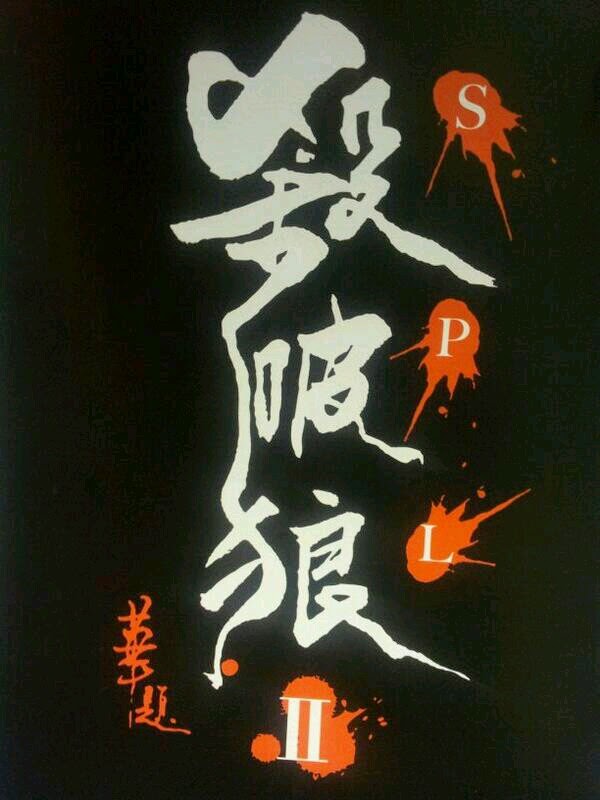 殺破狼
S
P
L
II
華題